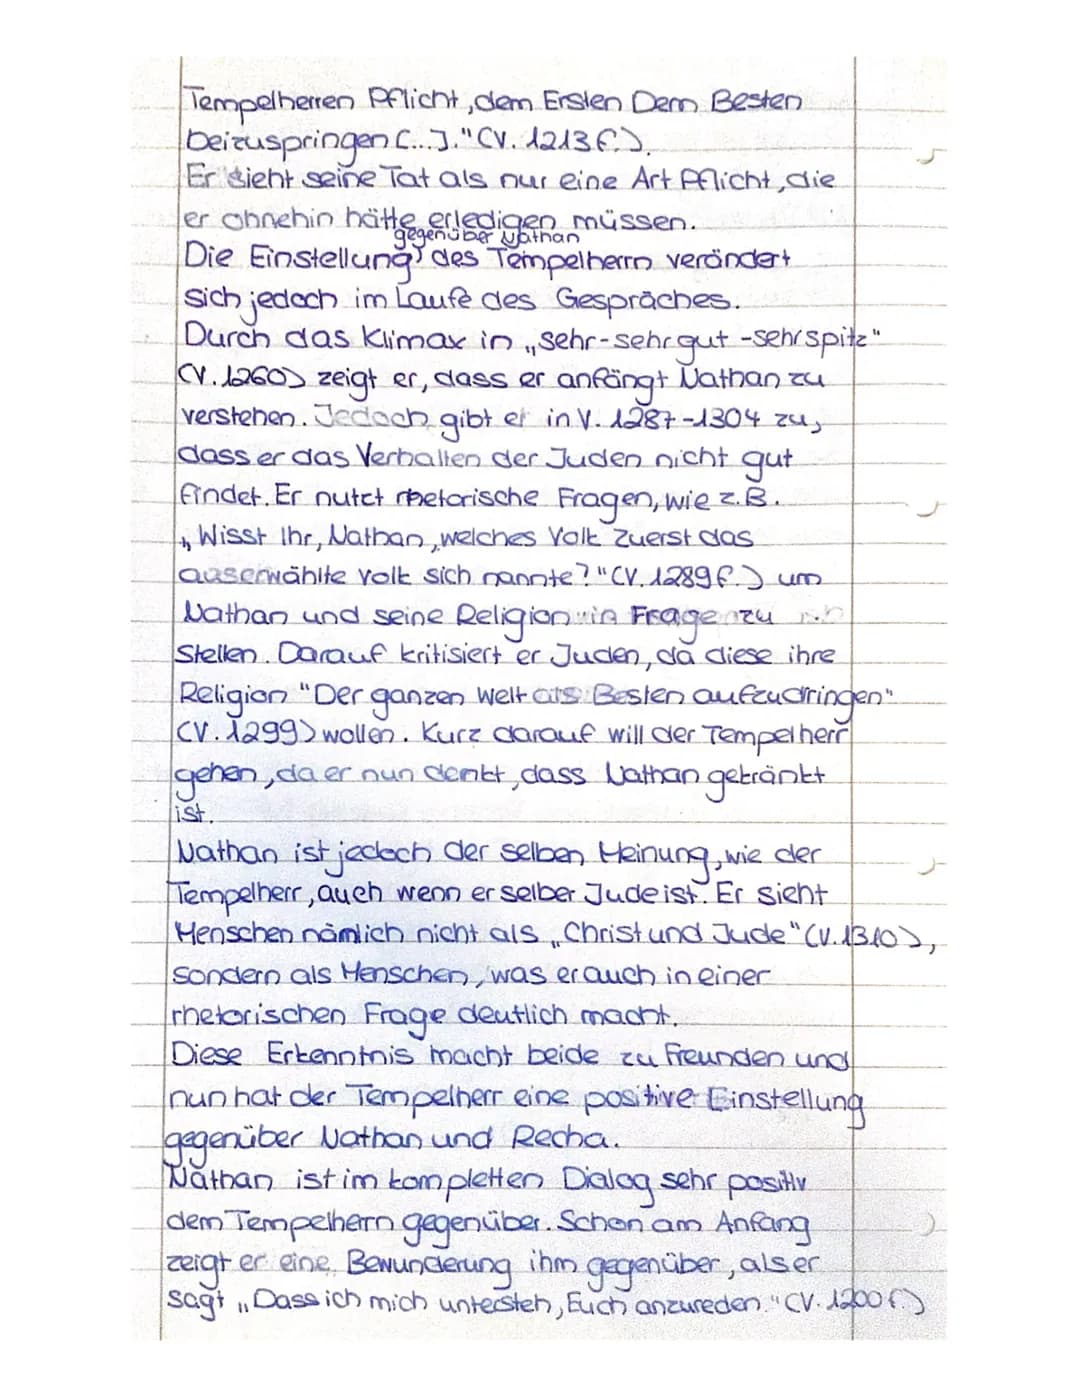 Tempelherren Pflicht, dem Ersten Dem Besten
beizuspringen [...]." (V. 1213 f.).
Er sieht seine Tat als nur eine Art Pflicht, die
er ohnehin hätte erledigen müssen.
gegenüber Nathan
Die Einstellung des Tempelherrn verändert
sich jedoch im Laufe des Gespräches.
Durch das Klimax in „sehr-sehr gut -sehr spitz"
(V. 1260) zeigt er, dass er anfängt Nathan zu
verstehen. Jedoch gibt er in V. 1287-1304 zu,
dass er das Verhalten der Juden nicht gut
findet. Er nutzt rhetorische Fragen, wie z.B.
„Wisst Ihr, Nathan, welches Volk zuerst das
auserwählte Volk sich nannte?" (V. 1289 f.) um
Nathan und seine Religion in Frage zu
stellen. Darauf kritisiert er Juden, da diese ihre
Religion "Der ganzen Welt als Besten aufzudringen"
(V. 1299) wollen. Kurz darauf will der Tempelherr
gehen, da er nun denkt, dass Nathan gekränkt
ist.
Nathan ist jedoch der selben Meinung, wie der
Tempelherr, auch wenn er selber Jude ist. Er sieht
Menschen nämlich nicht als „Christ und Jude" (V. 1310),
sondern als Menschen, was er auch in einer
rhetorischen Frage deutlich macht.
Diese Erkenntnis macht beide zu Freunden und
nun hat der Tempelherr eine positive Einstellung
gegenüber Nathan und Recha.
Nathan ist im kompletten Dialog sehr positiv
dem Tempelherrn gegenüber. Schon am Anfang
zeigt er eine Bewunderung ihm gegenüber, als er
sagt „Dass ich mich untersteh, Euch anzureden." (V. 1200 f.)